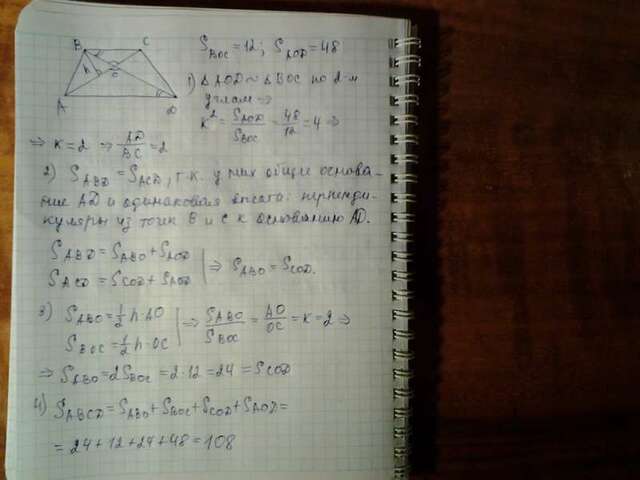 B C
h
O
A D
S_BOC = 12; S_AOD = 48
1) △AOD ~ △BOC по 2-м
углам ⇒
k² = S_AOD / S_BOC = 48/12 = 4 ⇒
⇒ k = 2 ⇒ AD/BC = 2
2) S_ABD = S_ACD, т.к. у них общие основа-
ние AD и одинаковая высота: перпенди-
куляры из точек B и C к основанию AD.
S_ABD = S_ABO + S_AOD
S_ACD = S_COD + S_AOD | ⇒ S_ABO = S_COD.
3) S_ABO = 1/2 h·AO
S_BOC = 1/2 h·OC | ⇒ S_ABO / S_BOC = AO/OC = k = 2 ⇒
⇒ S_ABO = 2S_BOC = 2·12 = 24 = S_COD
4) S_ABCD = S_ABO + S_BOC + S_COD + S_AOD =
= 24 + 12 + 24 + 48 = 108